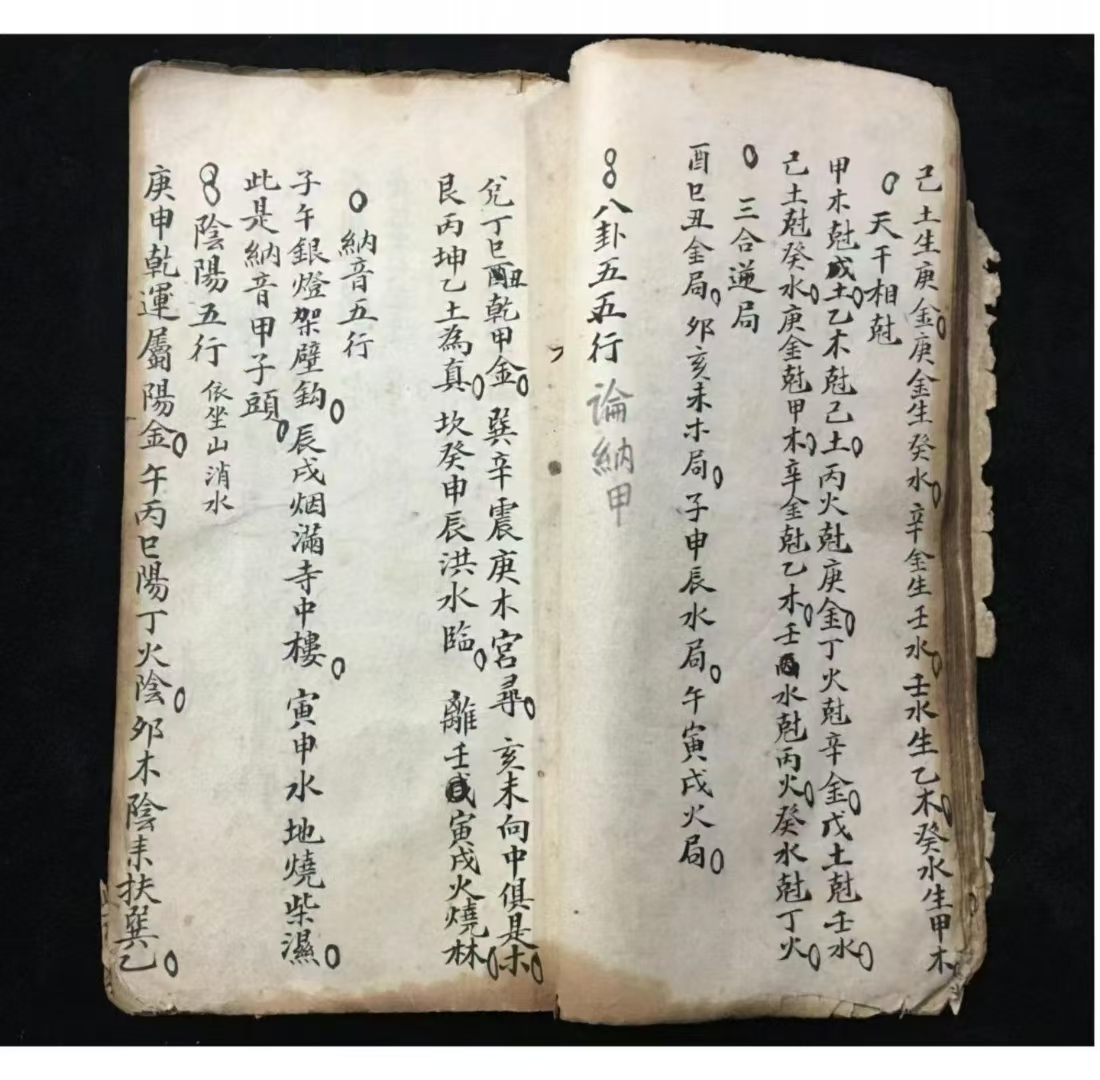 己土生庚金庚金生癸水辛金生壬水壬水生乙木癸水生甲木
天干相尅
甲木尅戊土乙木尅己土丙火尅庚金丁火尅辛金戊土尅壬水
己土尅癸水庚金尅甲木辛金尅乙木壬水尅丙火癸水尅丁火
三合逆局
酉巳丑金局夘亥未木局子申辰水局午寅戌火局
八卦五五行 论納甲
兌丁巳酉丑乾甲金巽辛震庚木宮尋亥未向中俱是木
艮丙坤乙土為真坎癸申辰洪水臨離壬寅戌火燒林
納音五行
子午銀燈架壁鈎辰戌烟滿寺中樓寅申水地燒柴濕
此是納音甲子頭
陰陽五行 依坐山消水
庚申乾運屬陽金午丙巳陽丁火陰夘木陰来扶巽乙